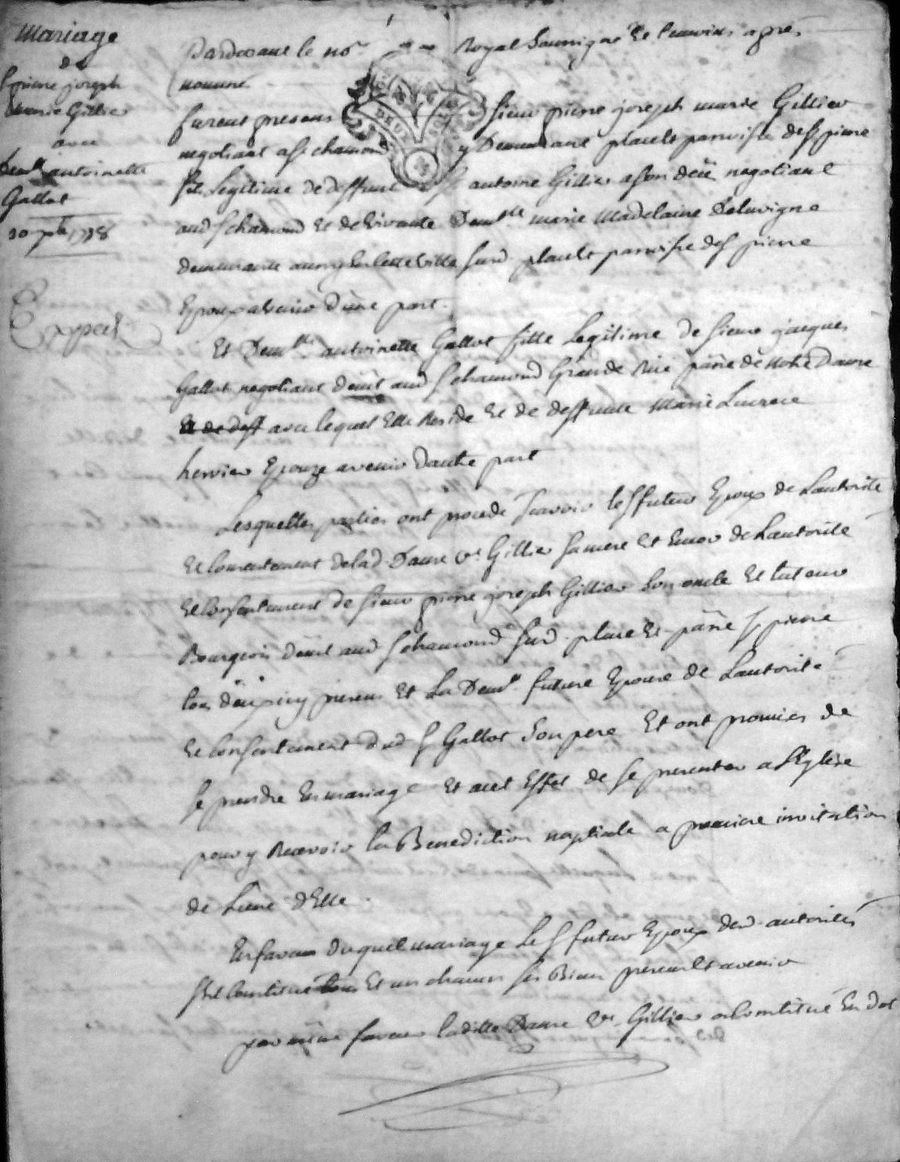 Mariage
de
Sr pierre joseph
marie Gillier
avec
Demlle antoinette
Gallot
Expedi
Pardevant le nore Royal Soussigné Et temoins apres
nommé
furent presens Sieur pierre joseph marie Gillier
negotiant a St chamond y Demeurant place et parroisse de St pierre
fils Legitime de deffunt Sr antoine Gillier negotiant
aud St chamond Et de vivante Demlle marie Madelaine Delavigne
demeurante en cette ville Susd place et parroisse de St pierre
Epoux avenir d'une part.
Et Demlle antoinette Gallot fille Legitime de Sieur jacques
Gallot negotiant demt aud St chamond Grande Rue parse de notre Dame
Et de deff avec lequel Elle Reside Et de deffunte Marie Lucrece
hervier Epouze avenir d'autre part
Lesquelles parties ont procedé Scavoir le Sr futur Epoux de Lautorité
Et Consentement de lad. Dame ve Gillier sa mere Et Encor de Lautorité
Et Consentement de Sieur pierre joseph Gillier Son oncle Et tuteur
Bourgeois demt aud St chamond Susd. place Et parse St pierre
tous deux icy presens Et La Demlle future Epouse de Lautorité
Et Consentement dud Sr Gallot Son pere Et ont promis de
se prendre En mariage Et a cet Effet de se presenter a l'Eglise
pour y Recevoir la Benediction nuptiale a premiere invitation
de L'une d'Elle.
En faveur duquel mariage Le Sr futur Epoux desd. autorités
s'est Constitué tous Et un chacun ses Biens presens Et avenir
par même faveur laditte Dame Ve Gillier a Constitué En dot